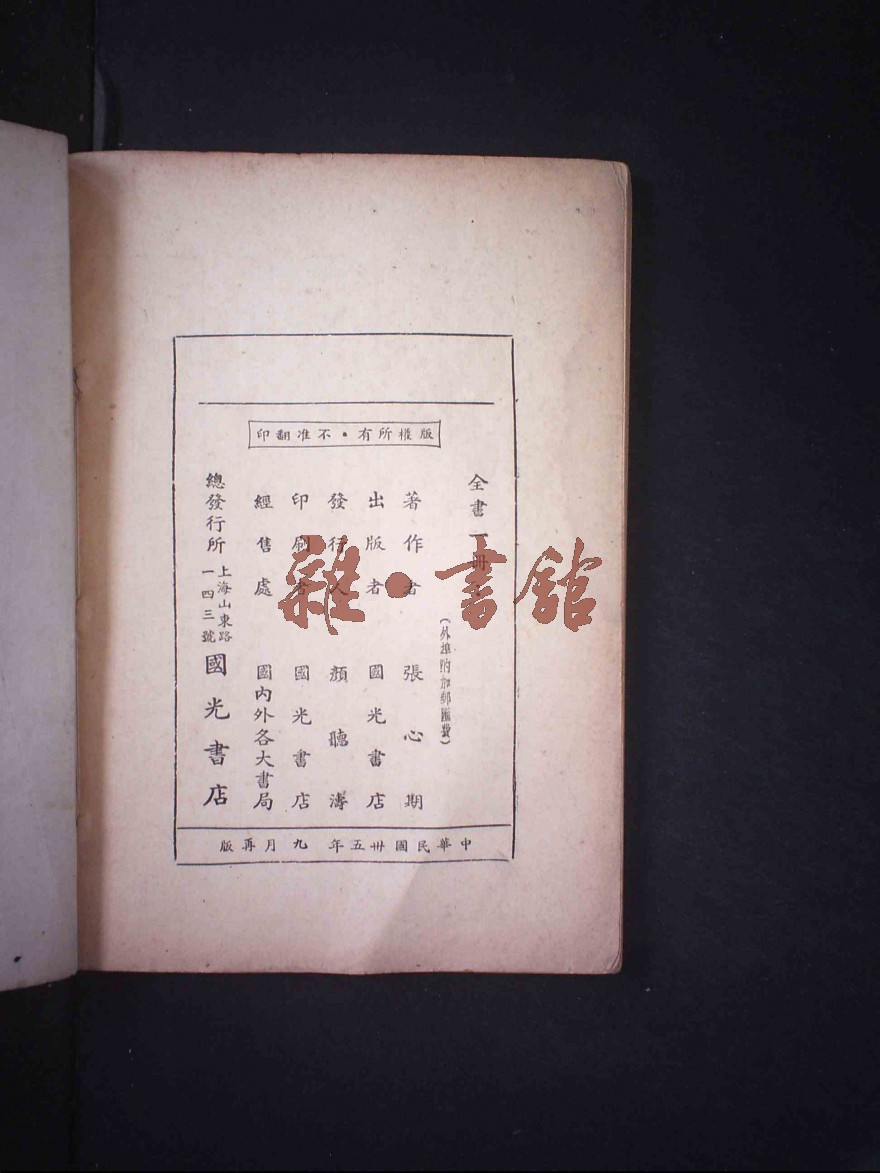 版權所有・不准翻印
全書一冊
(外埠附加郵匯費)
著作者 張心期
出版者 國光書店
發行人 顏聽濤
印刷者 國光書店
經售處 國內外各大書局
總發行所 上海山東路一四三號 國光書店
中華民國卅五年九月再版
雜・書館